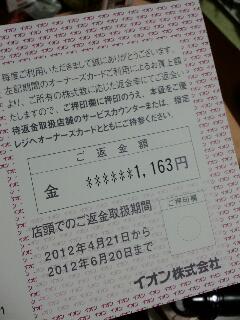 毎度ご利用いただきまして誠にありがとうございます。
左記期間のオーナーズカードご利用によるお買上額
より、ご所有の株式数に応じた返金率にてご返金い
たしますので、ご押印欄に押印のうえ、本証をご優
待返金取扱店舗のサービスカウンターまたは、指定
レジへオーナーズカードとともにご持参ください。
ご返金額
金 ******1,163円
店頭でのご返金取扱期間
ご押印欄
2012年4月21日から
2012年6月20日まで
イオン株式会社